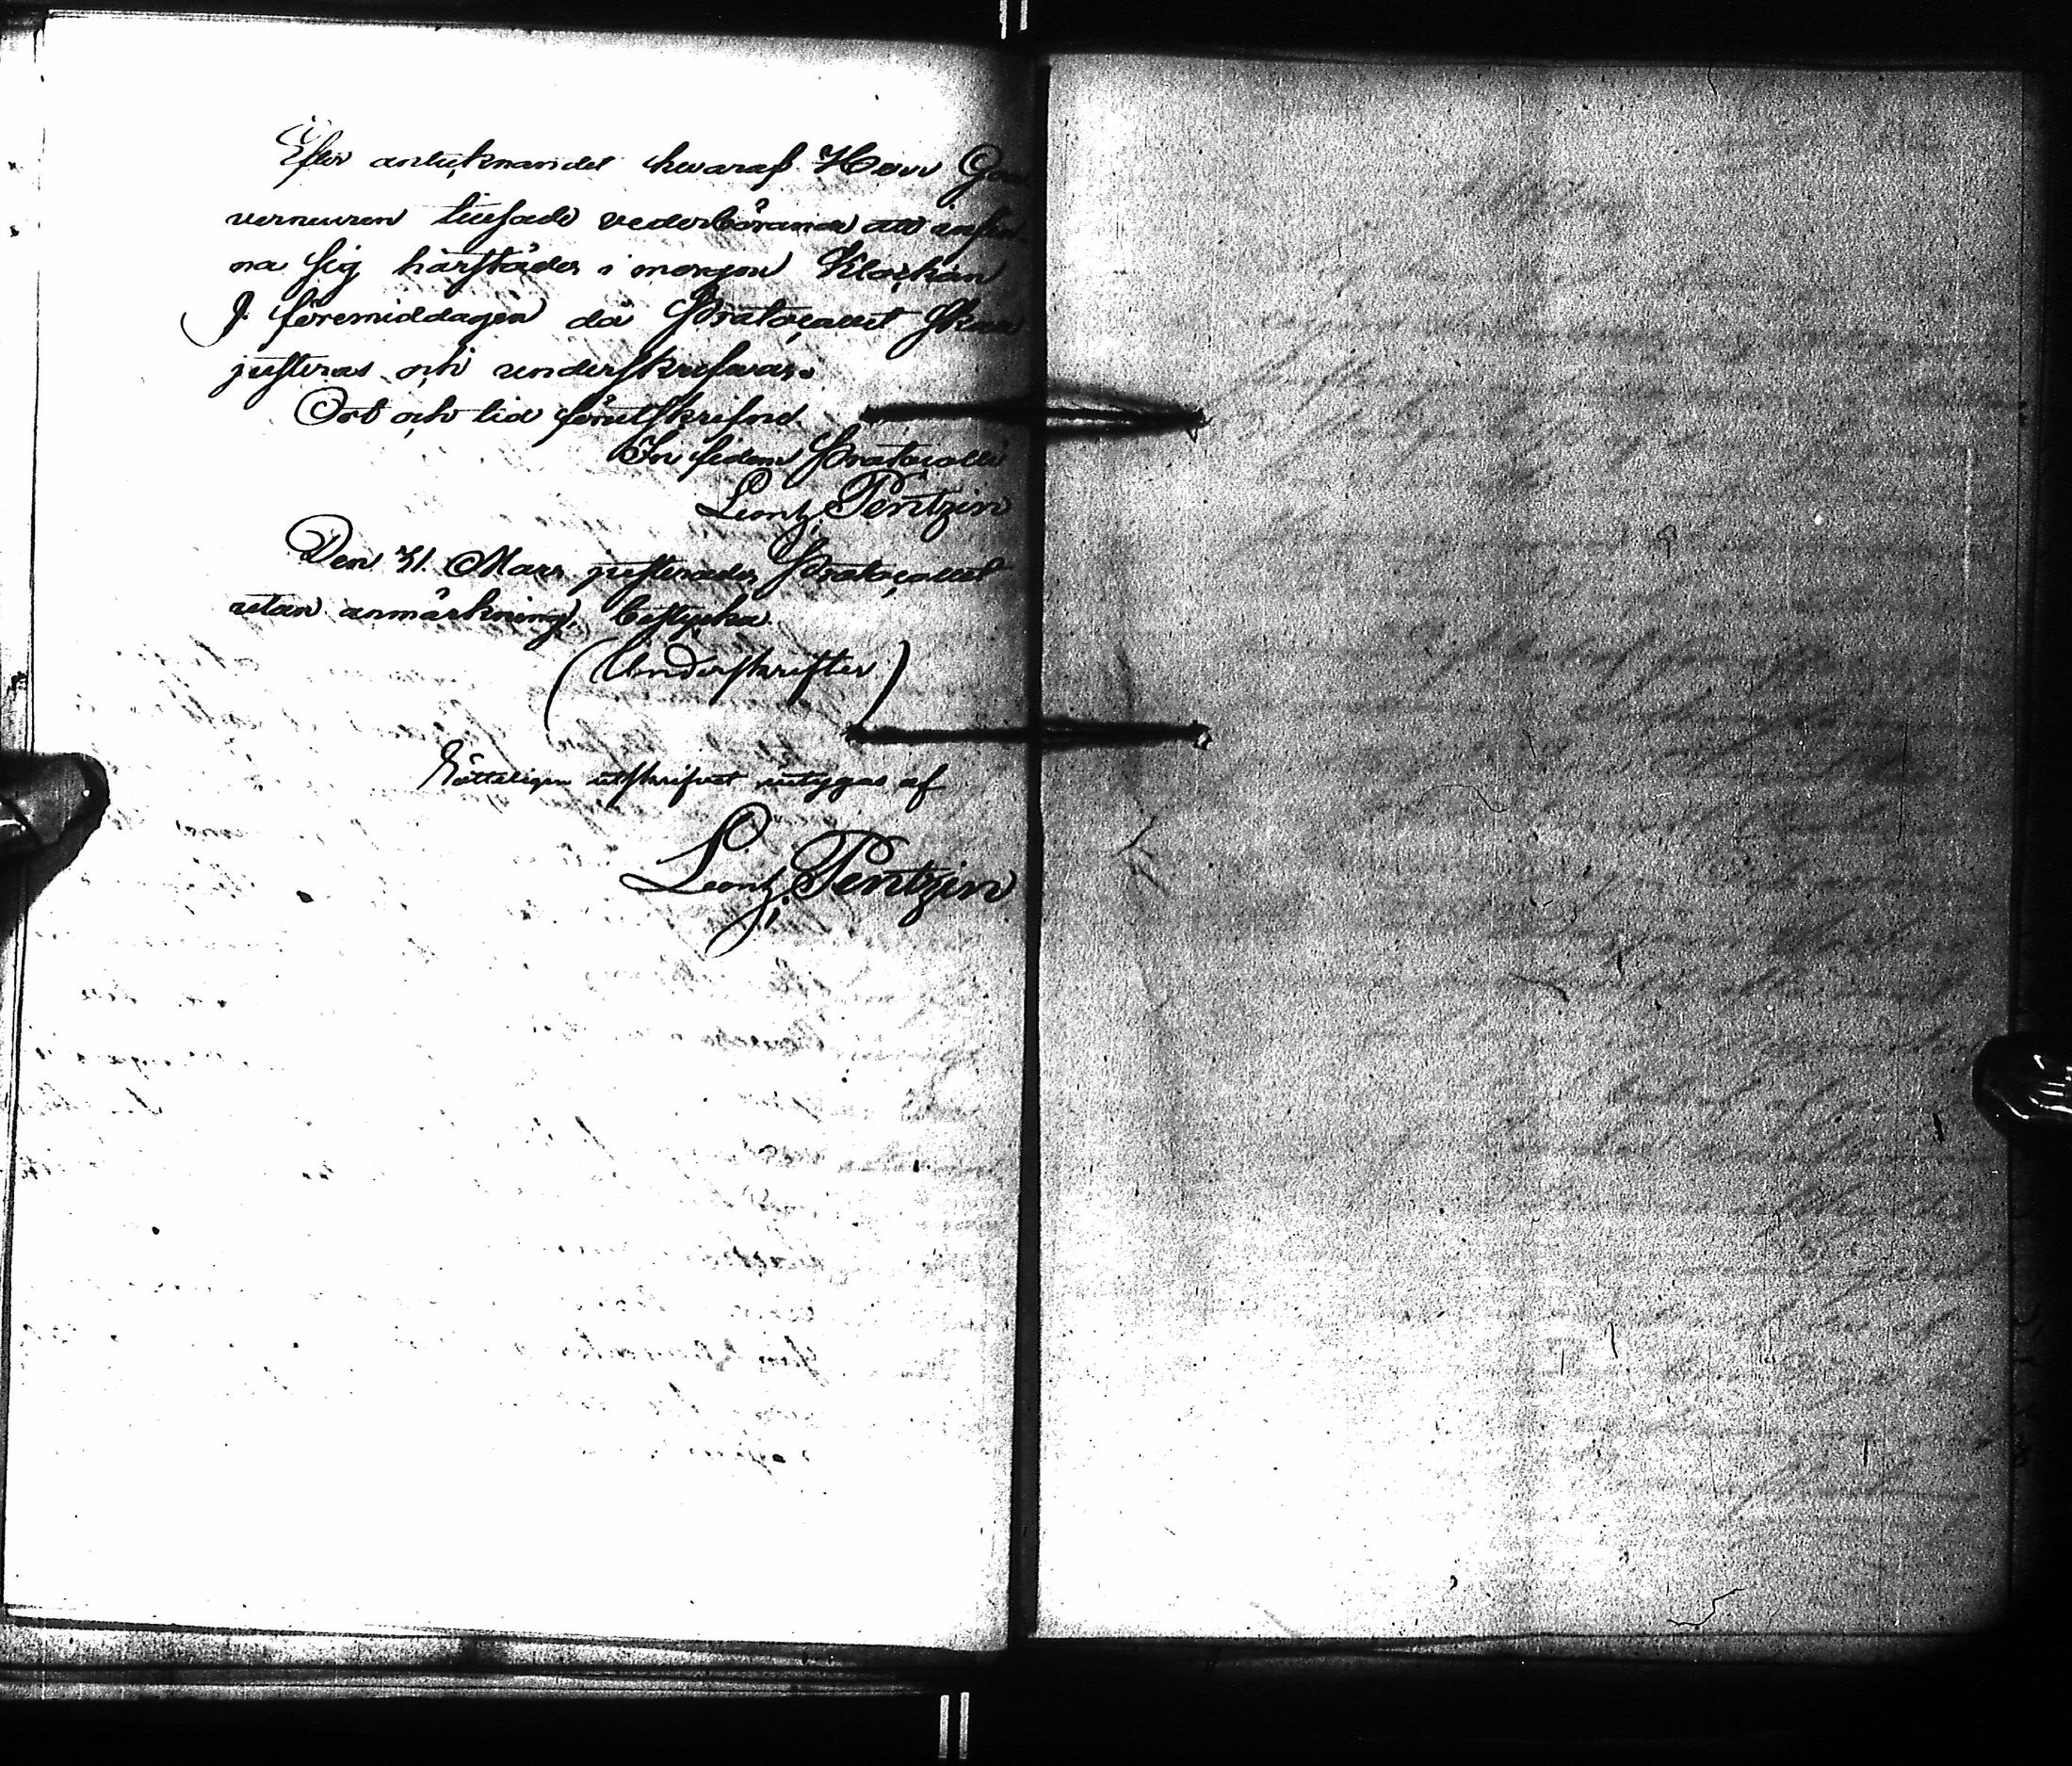 Efter antecknandet hwaraf Herr Gou-
verneuren tillsade vederbörande att infin-
na sig härstädes i morgon Klockan
9. föremiddagen då Protocollet skall
justeras och underskrifwas.
Ort och tid förutskrifne.
In fidem Protocolli
Leontz. Pentzin
Den 31. Mars justerades Protocollet
utan anmärkning, betyga
(Underskrifter)
Rätteligen utskrifvet intygar af
Leontz. Pentzin